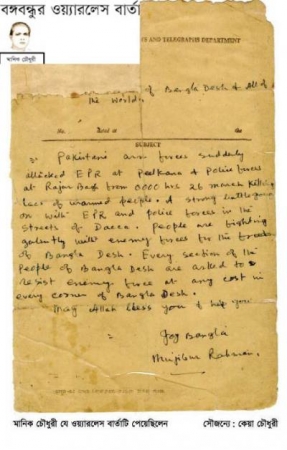 বঙ্গবন্ধুর ওয়্যারলেস বার্তা
মানিক চৌধুরী
AND TELEGRAPHS DEPARTMENT
of Bangla Desh & All of
the World.
No.
the
SUBJECT
Pakistani armforces suddenly
attacked EPR at Peelkhana & Police forces
at Rajar Bagh from 0000 hrs 26 march killing
lacs of unarmed people. A strong battle going
on with EPR and police forces in the
streets of Dacca. People are fighting
galantly with enemy forces for the freedom
of Bangla Desh. Every section of the
People of Bangla Desh are asked to
resist enemy force at any cost in
every corner of Bangla Desh.
May Allah bless you & help you
Joy Bangla
Mujibur Rahman.
মানিক চৌধুরী যে ওয়্যারলেস বার্তাটি পেয়েছিলেন
সৌজন্যে : কেয়া চৌধুরী